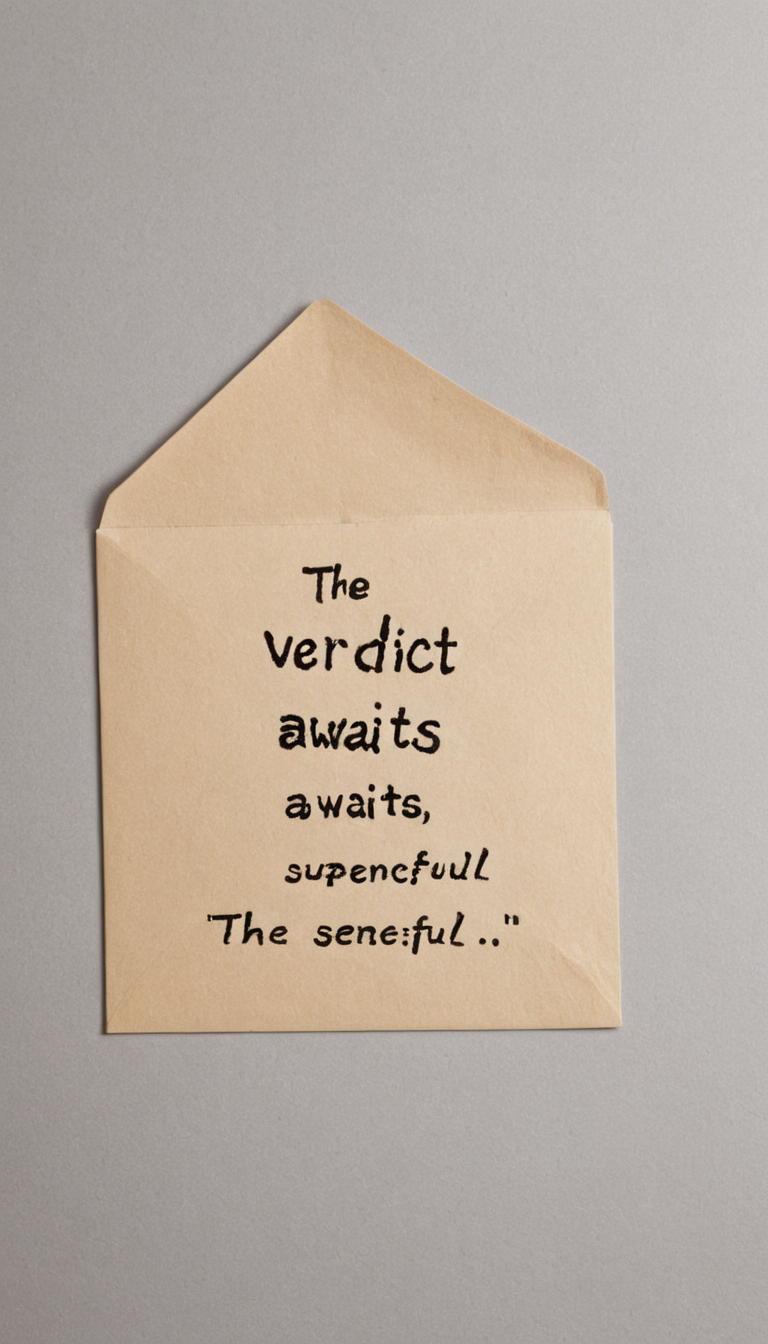 The
verdict
awaits
awaits,
supencfull
"The sene:ful .."